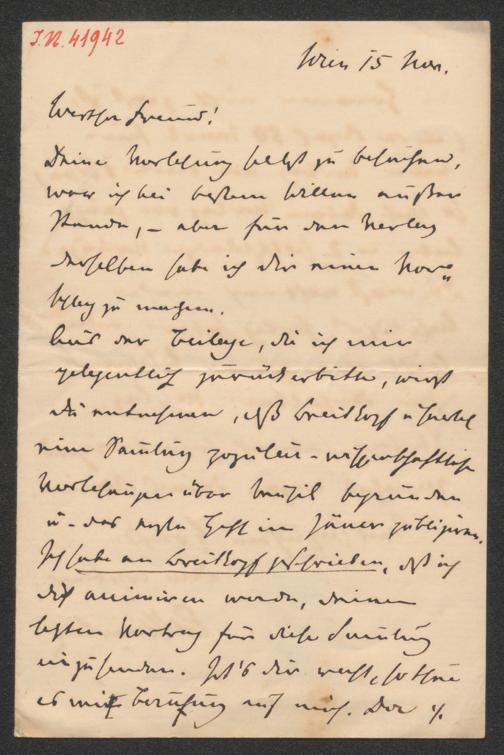 I.N. 41942
Wien 15 Nov.
Werther Freund!
Deine Vorlesung selbst zu besuchen,
war ich bei bestem Willen außer
Stande, – aber für den Verlag
derselben habe ich dir einen Vor-
schlag zu machen.
Aus der Beilage, die ich mir
gelegentlich zurückerbitte, wirst
du entnehmen, daß Breitkopf u Haertel
eine Samlung populär-wissenschaftliche
Vorlesungen über Musik begründen
u. das erste Heft im Jäner publiziren.
Ich habe an Breitkopf geschrieben, daß ich
dich animiren werde, deinen
letzten Vortrag für diese Samlung
einzusenden. Ist's dir recht, so thue
es mit Berufung auf mich. Der %